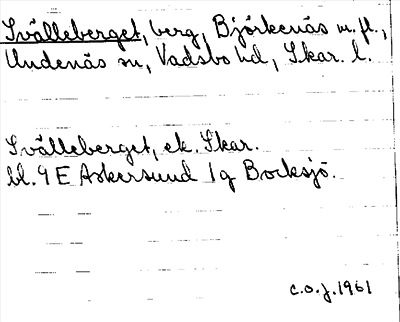 Svälleberget, berg, Björkenäs m.fl.,
Undenäs sn, Vadsbo hd, Skar. l.
Svälleberget, ek. Skar.
bl. 9 E Askersund 1g Bocksjö.
c.o.j. 1961